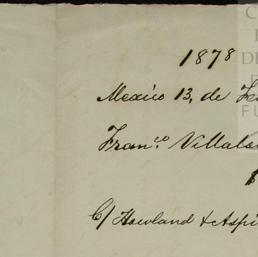 1878
Mexico 13, de Fe
Fran.co Villalo
$
C/ Howland & Aspi